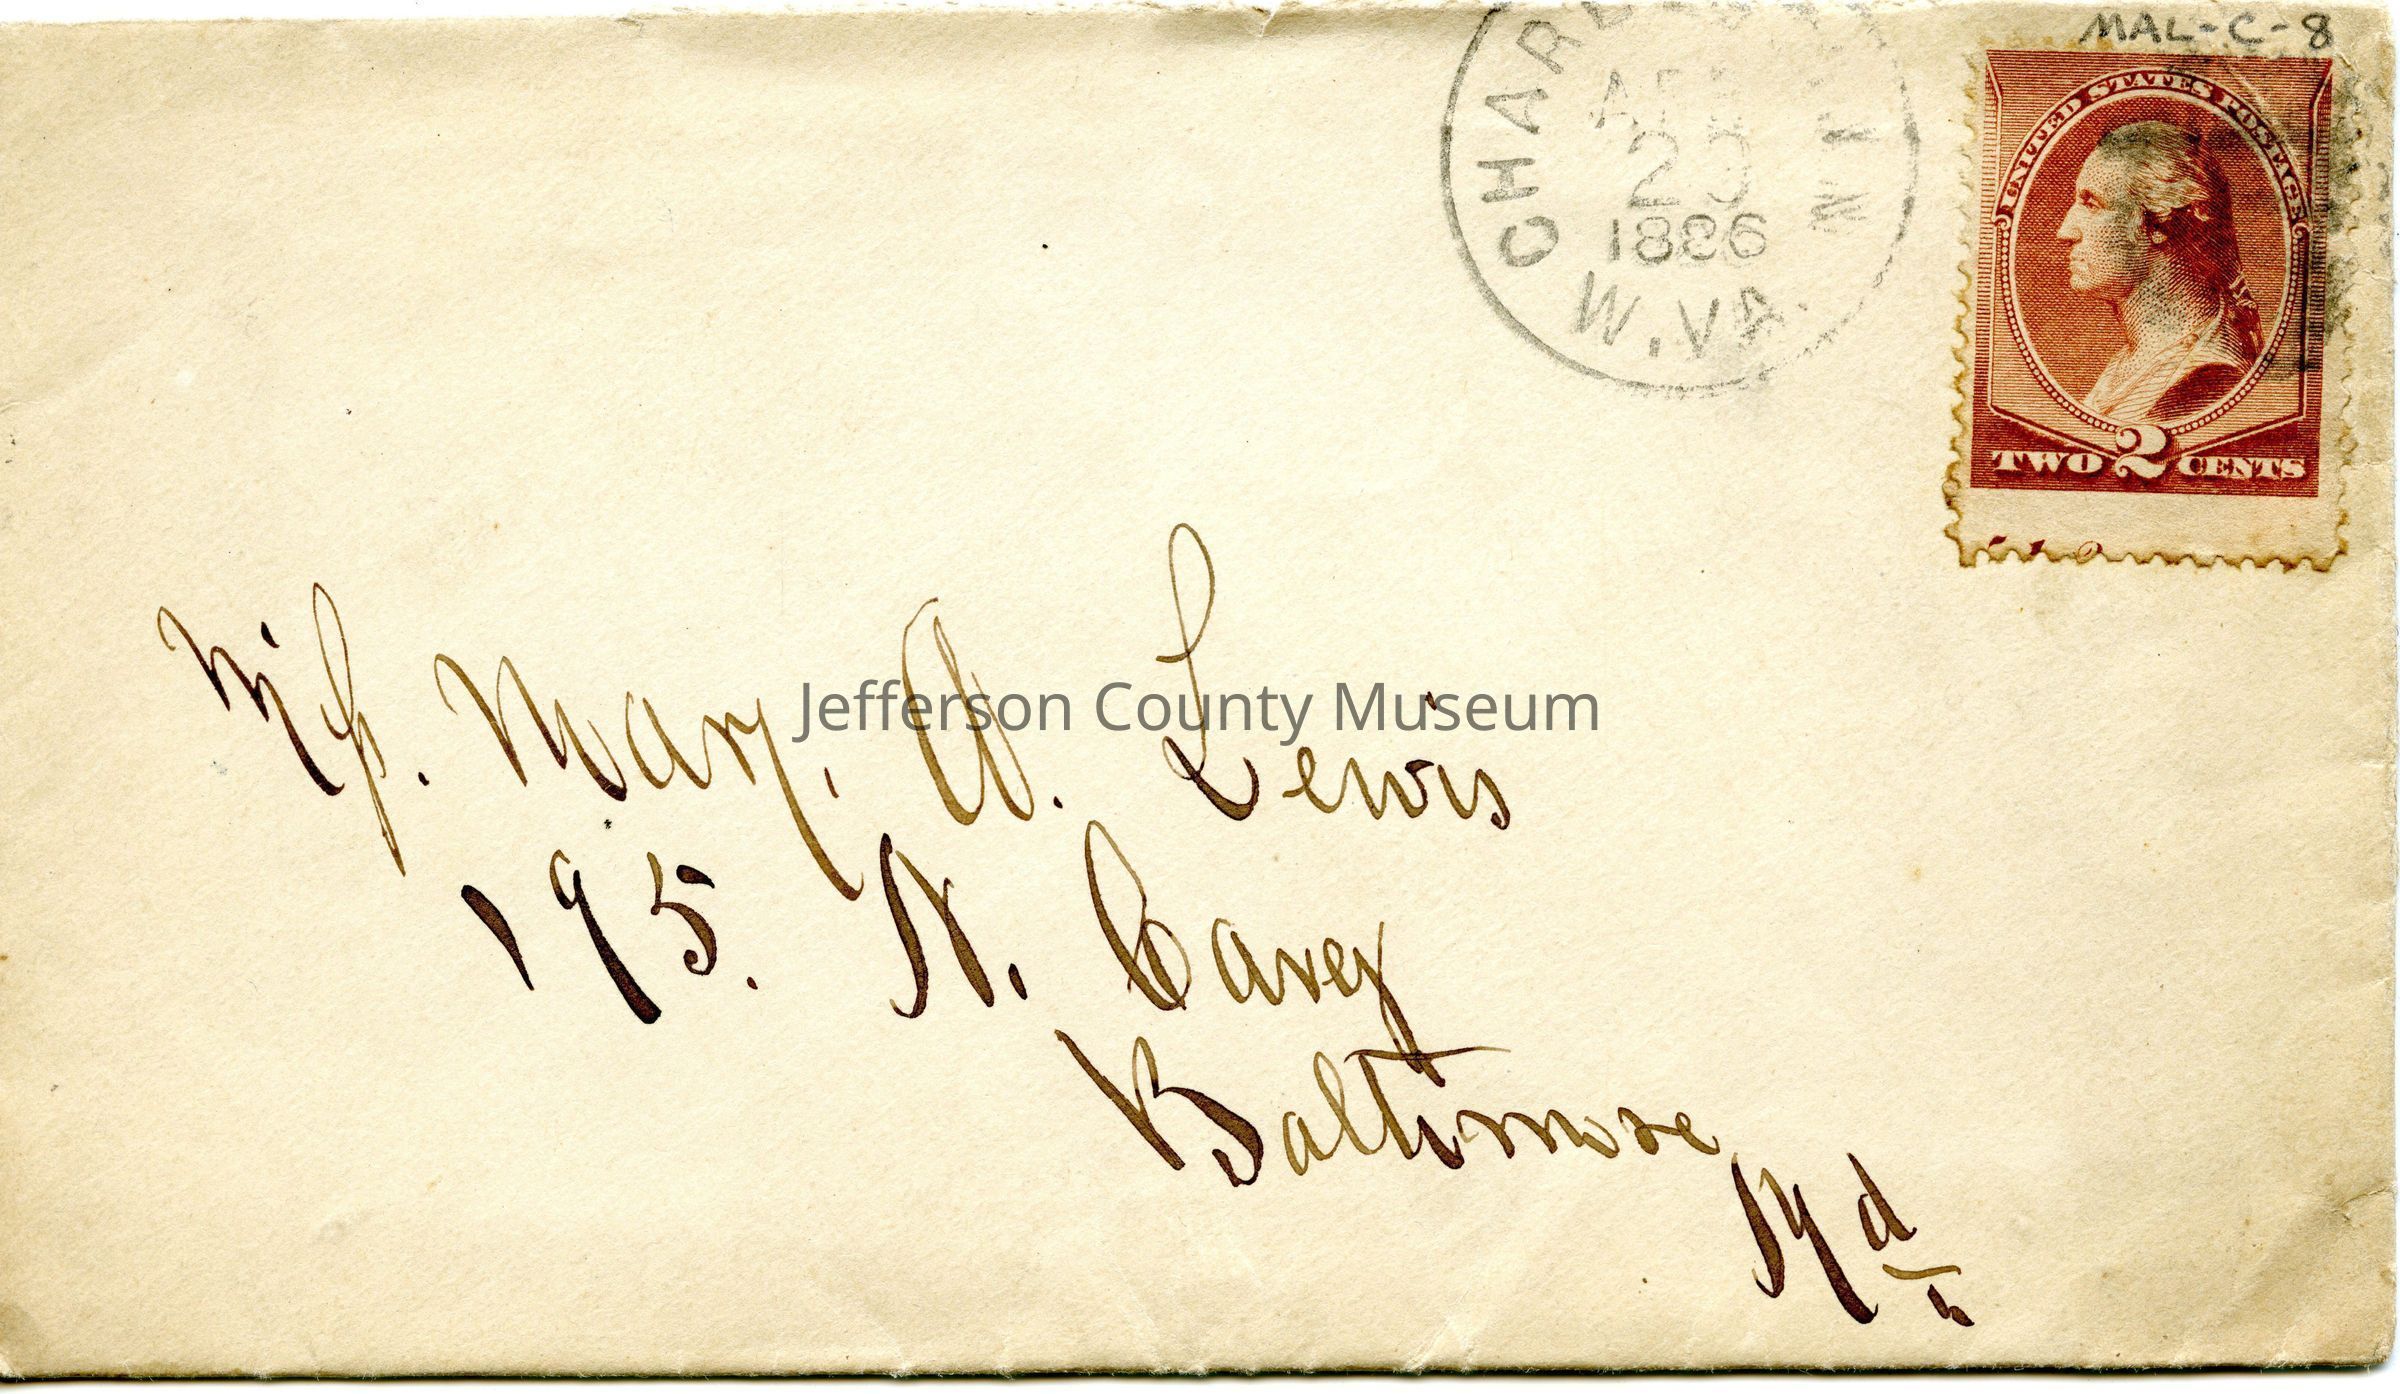 MAL-C-8
W.VA.
1886
UNITED STATES POSTAGE
TWO 2 CENTS
Miss. Mary. A. Lewis
Jefferson County Museum
195. N. Carey
Baltimore
Md